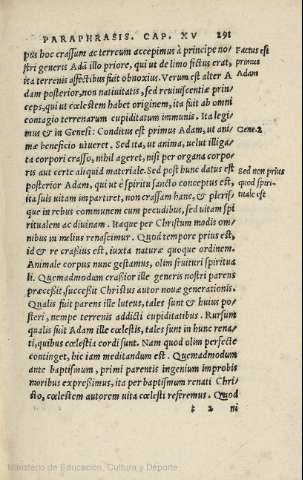 PARAPHRASIS. CAP. XV 291
psus hoc crassum ac terreum accepimus à principe no/
stri generis Adã illo priore, qui ut de limo fictus erat,
ita terrenis affectibus fuit obnoxius. Verum est alter A
dam posterior, non natiuitatis, sed reuiuiscentiæ prin/
ceps, qui ut cœlestem habet originem, ita fuit ab omni
contagio terrenarum cupiditatum immunis. Ita legi/
mus & in Genesi: Conditus est primus Adam, ut ani/
mæ beneficio uiueret. Sed ita, ut anima, uelut illiga/
ta corpori crasso, nihil ageret, nisi per organa corpo/
ris aut certe aliquid materiale. Sed post hunc datus est
posterior Adam, qui ut è spiritu sancto conceptus est,
ita suis uitam impartiret, non crassam hanc, & pleris/
que in rebus communem cum pecudibus, sed uitam spi
ritualem ac diuinam. Itaque per Christum modis om/
nibus in melius renascimur. Quod tempore prius est,
id & re crasius est, iuxta naturæ quoque ordinem.
Animale corpus nunc gestamus, olim fruituri spiritua
li. Quemadmodum crasior ille generis nostri parens
præcessit, successit Christus autor nouæ generationis.
Qualis fuit parens ille luteus, tales sunt & huius po/
steri, nempe terrenis addicti cupiditatibus. Rursum
qualis fuit Adam ille cœlestis, tales sunt in hunc rena/
ti, quibus cœlestia cordi sunt. Nam quod olim perfecte
continget, hic iam meditandum est. Quemadmodum
ante baptismum, primi parentis ingenium improbis
moribus expressimus, ita per baptismum renati Chri/
sto, cœlestem autorem uita cœlesti referemus. Quod
t 2 ni
Factus est
primus
Adam
Gene.2
Sed non prius
quod spiri-
tuale est
Ministerio de Educación, Cultura y Deporte